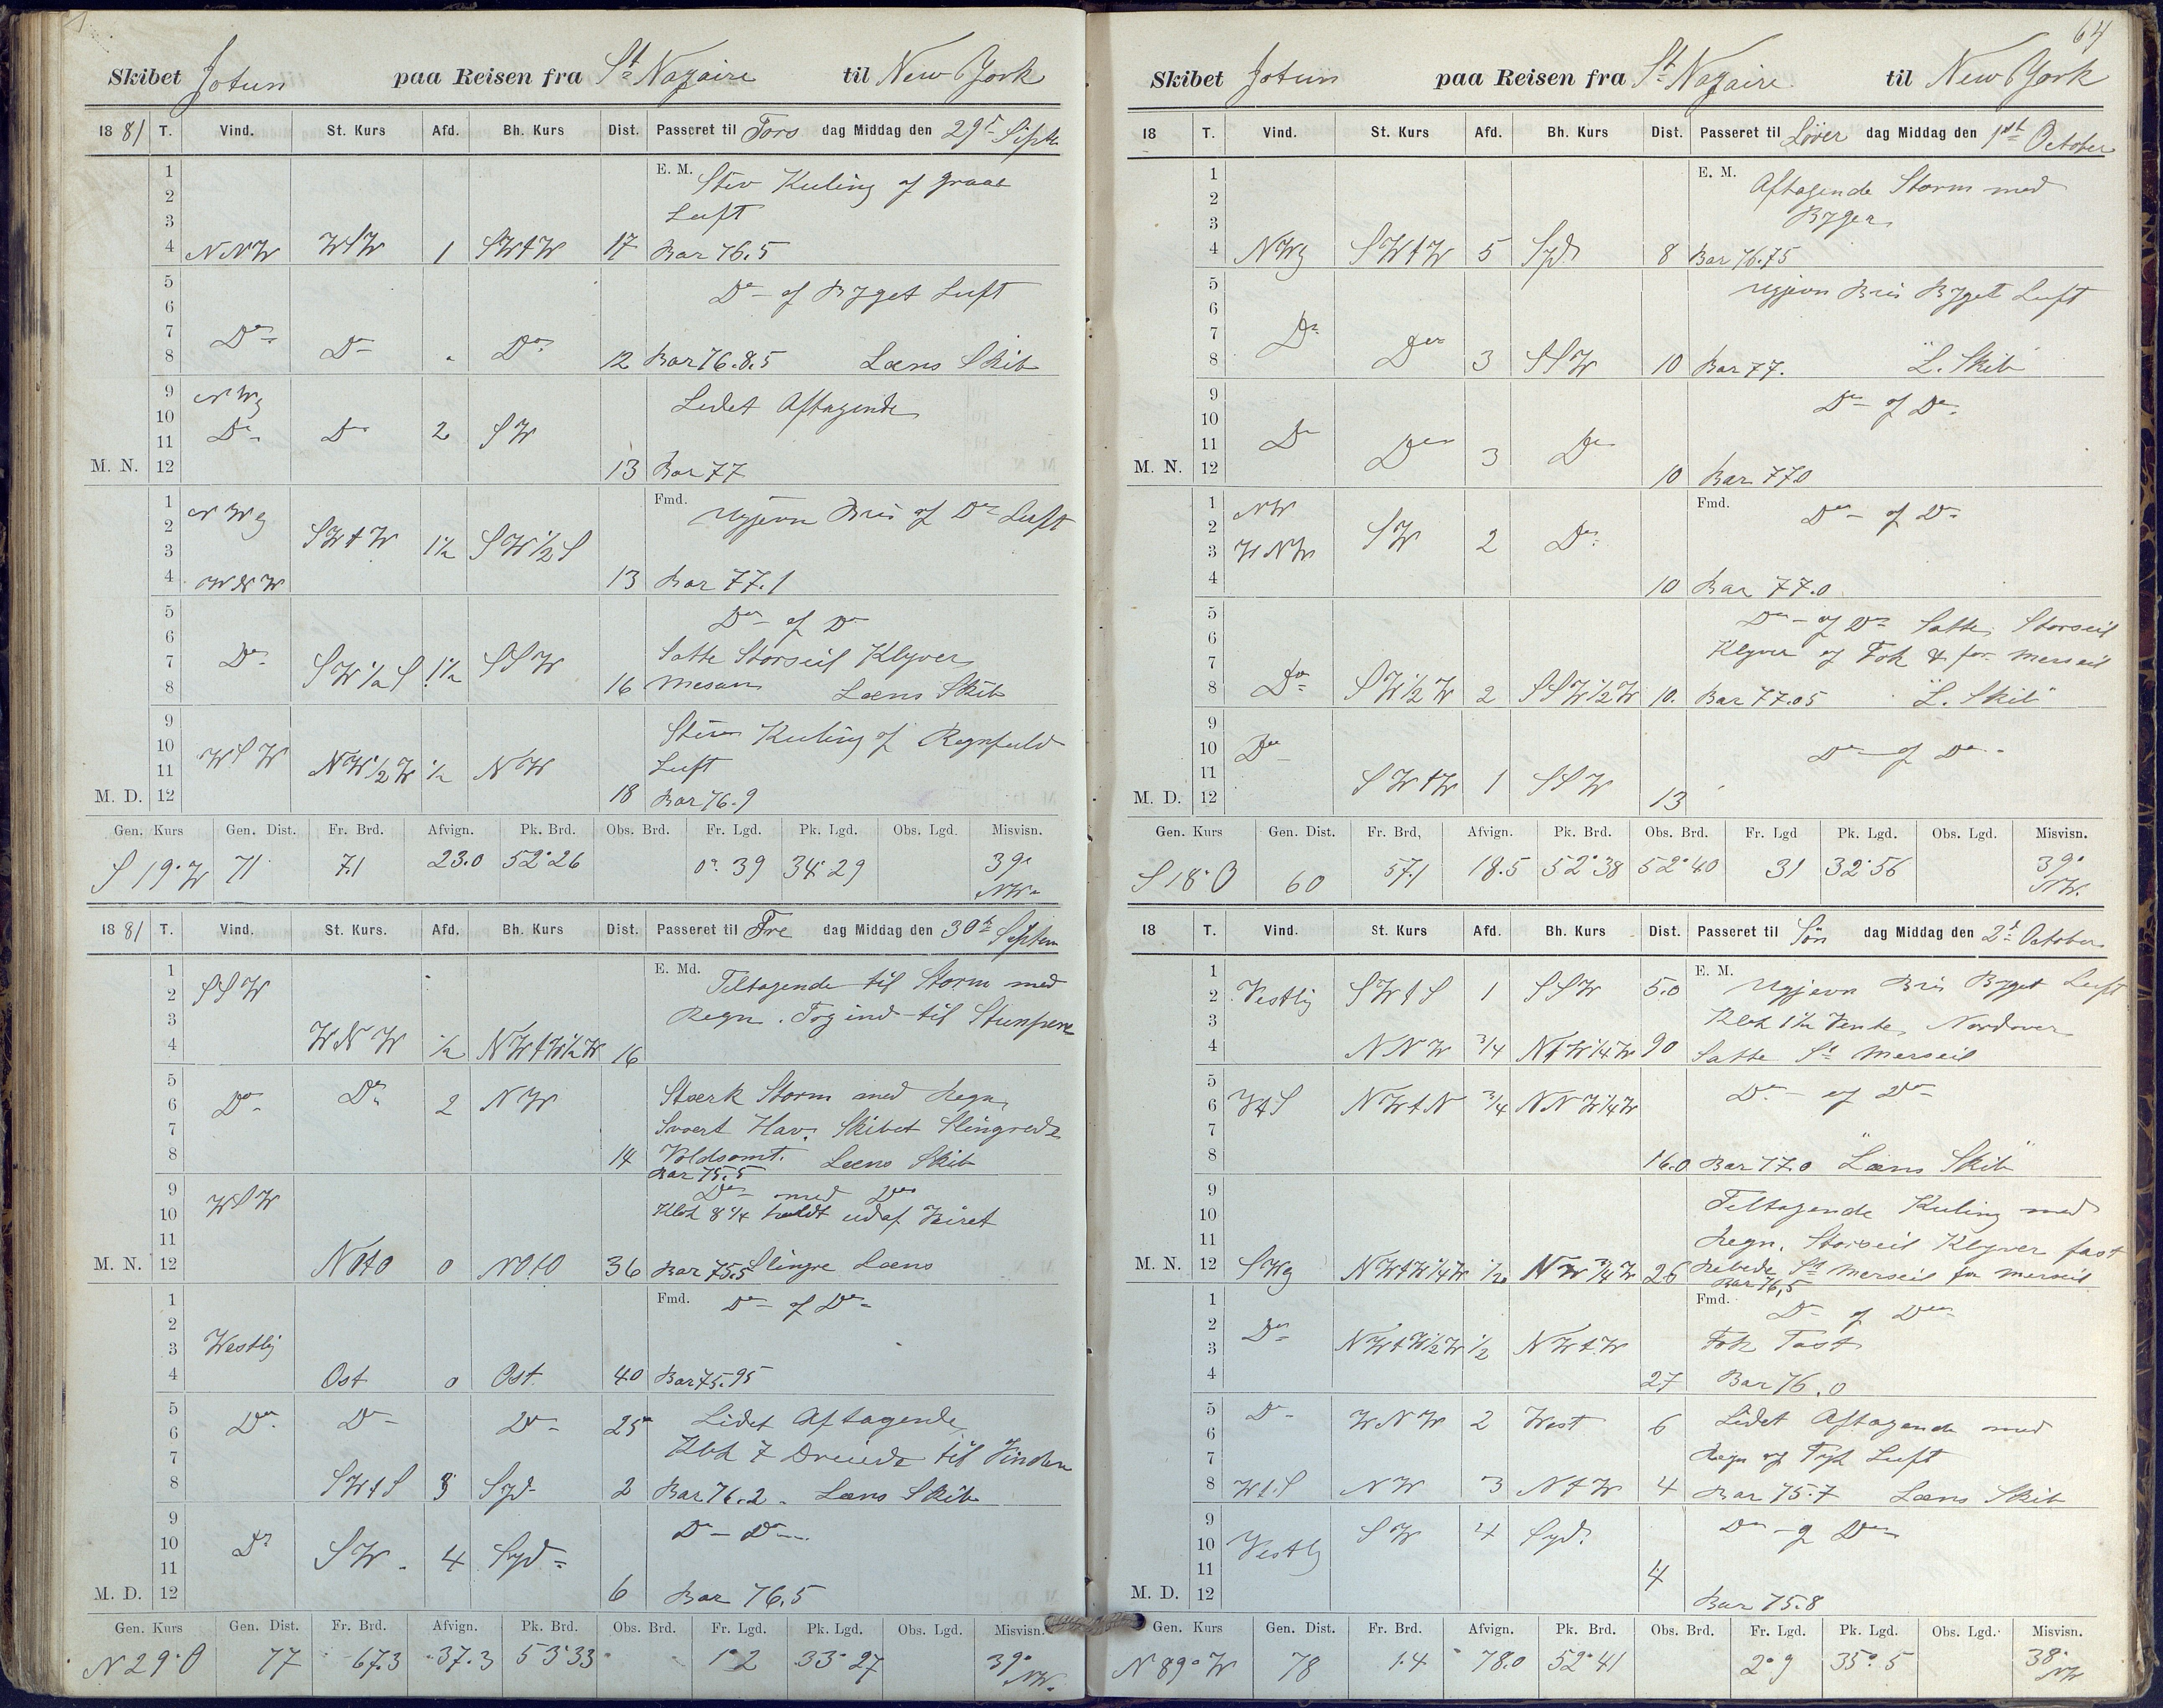 Skibet Jotun paa Reisen fra St Nazaire til New York
1881 T. Vind. St. Kurs Afd. Bh. Kurs Dist. Passeret til Tors dag Middag den 29de Septr
1
2
3
4 NNW WtW 1 SWtW 17
E. M. Stiv Kuling og graae
Luft
Bar 76.5
5
6
7
8 Do Do " Do 12
Do og Byget Luft
Bar 76.8.5 Læns Skib
9 NWg
10
11 Do Do 2 SW
M. N. 12 13
Lidet Aftagende
Bar 77
1 NWg
2
3 SWtW 1½ SW½S
4 WNW 13
Fmd. Ujjevn Bris og Do Luft
Bar 77.1
5
6
7 Do SW½S 1½ SSW
8 16
Do og Do
Satte Storseil Klyver
Mesan Læns Skib
9
10
11 WSW NW½W ½ NW
M. D. 12 18
Stiv Kuling og Regnfuld
Luft
Bar 76.9
Gen. Kurs Gen. Dist. Fr. Brd. Afvign. Pk. Brd. Obs. Brd. Fr. Lgd. Pk. Lgd. Obs. Lgd. Misvisn.
S 19° W 71 71 23.0 52°26 0° 39 34°29 39° NW
1881 T. Vind. St. Kurs. Afd. Bh. Kurs Dist. Passeret til Fre dag Middag den 30te Septem
1
2 SSW
3
4 WNW ½ NWtW½W 16
E. Md. Tiltagende til Storm med
Regn. Tog ind til Stumpene
5
6 Do Do 2 NW
7
8 14
Stærk Storm med Regn
Svært Hav. Skibet Slingrede
Voldsomt. Læns Skib
Bar 75.5
9
10 WSW
11
M. N. 12 NOtO 0 NOtO 36
Do med Do
Klok 8¼ holdt udaf Veiret
Bar 75.5 Slingre Læns
1
2
3 Westlig
4 Ost 0 Ost 40
Fmd. Do og Do
Bar 75.95
5
6 Do Do Do 25
7
8 SWtS 3 Syd 2
Lidet Aftagende
Klok 7 Dreiede til Vinden
Bar 76.2. Læns Skib
9
10 Do SW 4 Syd
11
M. D. 12 6
Do Do
Bar 76.5
Gen. Kurs Gen. Dist. Fr. Brd. Afvign. Pk. Brd. Obs. Brd. Fr. Lgd. Pk. Lgd. Obs. Lgd. Misvisn.
N 29° O 77 67.3 37.3 53°33 1°2 33°27 39° NW.
64
Skibet Jotun paa Reisen fra St Nazaire til New York
18 T. Vind. St. Kurs Afd. Bh. Kurs Dist. Passeret til Löver dag Middag den 1st October
1
2
3
4 NWg SWtW 5 Syd 8
E. M. Aftagende Storm med
Byger
Bar 76.75
5
6
7 Do
8 Do 3 SSW 10
Ujjevn Bris Byget Luft
Bar 77. "L. Skib"
9
10
11 Do Do 3 Do
M. N. 12 10
Do og Do
Bar 77.0
1 NW
2
3 WNW SW 2 Do
4 10
Fmd. Do og Do
Bar 77.0
5
6
7
8 Do SW½W 2 SSW½W 10.
Do og Do Satte Storseil
Klyver og Fok & for merseil
Bar 77.05 "L. Skib"
9
10 Do
11
M. D. 12 SWtW 1 SSW 13
Do og Do
Gen. Kurs Gen. Dist. Fr. Brd, Afvign. Pk. Brd. Obs. Brd. Fr. Lgd Pk. Lgd. Obs. Lgd. Misvisn.
S 18° O 60 57.1 18.5 52°38 52°40 31 32°56 39° NW.
18 T. Vind. St. Kurs Afd. Bh. Kurs Dist. Passeret til Sön dag Middag den 2d October
1
2 Vestlig SWtS 1 SSW 5.0
3
4 NNW ¾ NtW¼W 90
E. M. Ujjevn Bris Byget Luft
Klok 1½ Vendte Nordover
Satte St Merseil
5
6 WtS NWtN ¾ NNW¼W
7
8 16.0
Do og Do
Bar 77.0 "Læns Skib"
9
10
11
M. N. 12 SWg NWtW¼W ½ NW¾W 26
Tiltagende Kuling med
Regn. Storseil Klyver fast
Rebede St merseil for merseil
Bar 76,5
1
2
3 Do NWtW½W ½ NWtW
4 27
Fmd. Do og Do
Fok Fast
Bar 76.0
5 Do WNW 2 West 6
6
7
8 WtS NW 3 NtW 4
Lidet Aftagende med
Regn og Tyk Luft
Bar 75.7 Læns Skib
9 SW 4 Syd.
10 Vestlig
11
M. D. 12 4
Do og Do
Bar 75.8
Gen. Kurs Gen. Dist. Fr. Brd. Afvign. Pk. Brd. Obs. Brd. Fr. Lgd. Pk. Lgd. Obs. Lgd. Misvisn.
N 89° W 78 1.4 78.0 52°41 2°9 35°5 38° NW